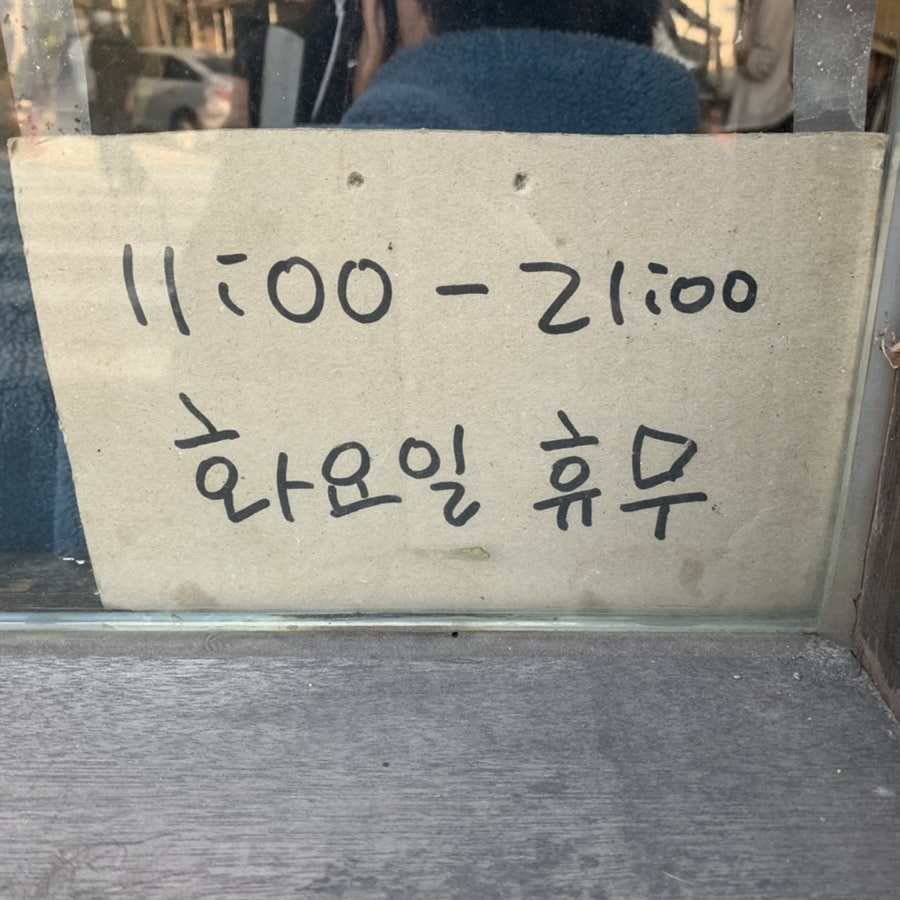 11:00 - 21:00
화요일 휴무